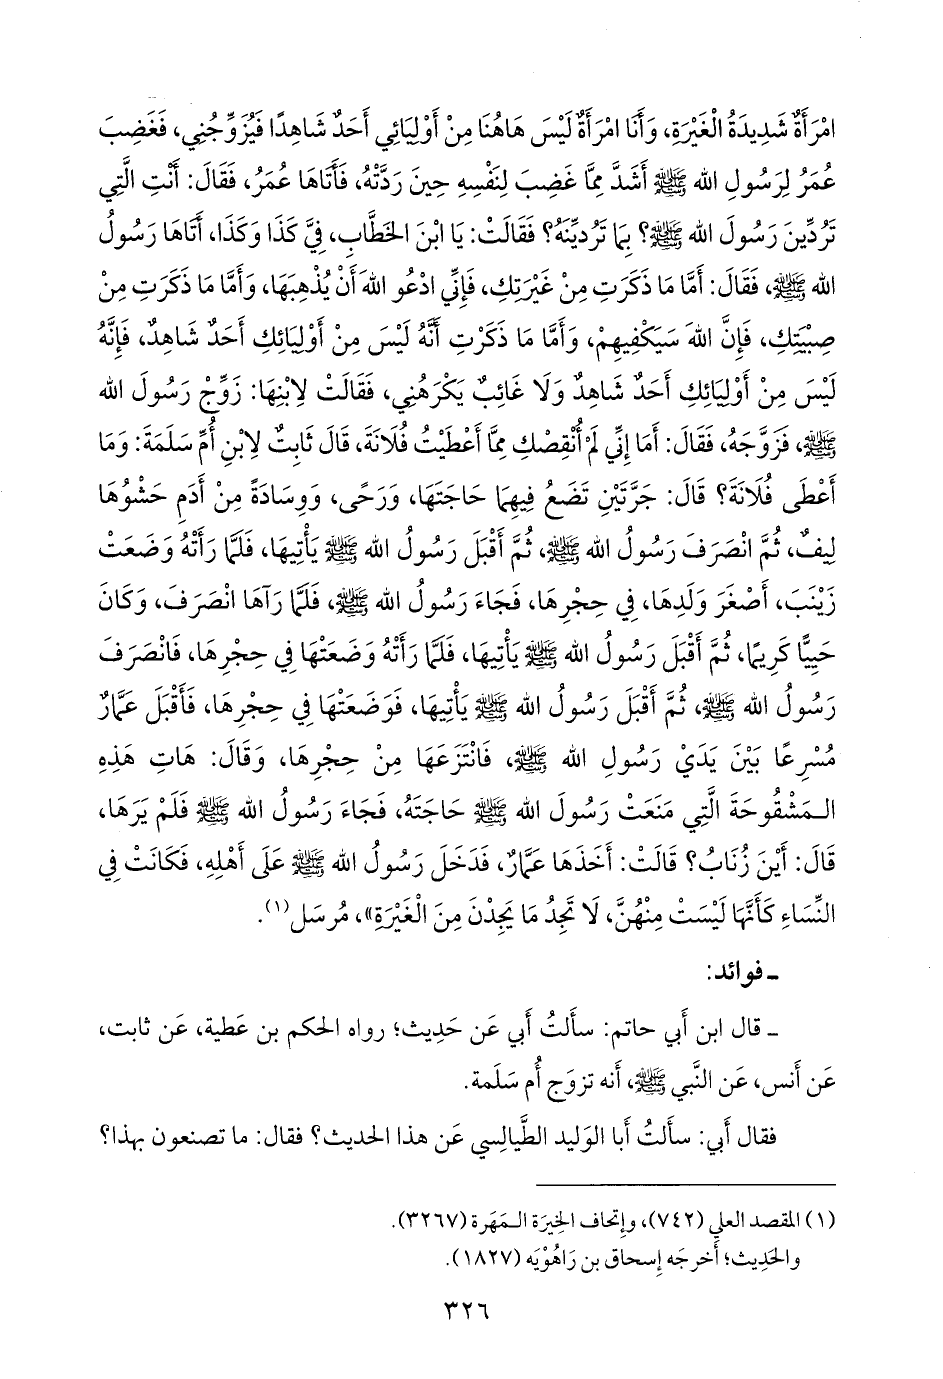 امْرَأَةٌ شَدِيدَةُ الْغَيْرَةِ، وَأَنَا امْرَأَةٌ لَيْسَ هَاهُنَا مِنْ أَوْلِيَائِي أَحَدٌ شَاهِدًا فَيُزَوِّجُنِي، فَغَضِبَ
عُمَرُ لِرَسُولِ الله ﷺ أَشَدَّ مِمَّا غَضِبَ لِنَفْسِهِ حِينَ رَدَّتْهُ، فَأَتَاهَا عُمَرُ، فَقَالَ: أَنْتِ الَّتِي
تَرُدِّينَ رَسُولَ الله ﷺ؟ بِمَا تَرُدِّينَهُ؟ فَقَالَتْ: يَا ابْنَ الخَطَّابِ، فِيَّ كَذَا وَكَذَا، أَتَاهَا رَسُولُ
الله ﷺ، فَقَالَ: أَمَّا مَا ذَكَرَتِ مِنْ غَيْرَتِكِ، فَإِنِّي ادْعُو اللهَ أَنْ يُذْهِبَهَا، وَأَمَّا مَا ذَكَرَتِ مِنْ
صِبْيَتِكِ، فَإِنَّ اللهَ سَيَكْفِيهِمْ، وَأَمَّا مَا ذَكَرْتِ أَنَّهُ لَيْسَ مِنْ أَوْلِيَائِكِ أَحَدٌ شَاهِدٌ، فَإِنَّهُ
لَيْسَ مِنْ أَوْلِيَائِكِ أَحَدٌ شَاهِدٌ وَلَا غَائِبٌ يَكْرَهُنِي، فَقَالَتْ لِابْنِهَا: زَوِّجْ رَسُولَ الله
ﷺ، فَزَوَّجَهُ، فَقَالَ: أَمَا إِنِّي لَمْ أُنْقِصْكِ مِمَّا أَعْطَيْتُ فُلَانَةَ، قَالَ ثَابِتٌ لِابْنِ أُمِّ سَلَمَةَ: وَمَا
أَعْطَى فُلَانَةَ؟ قَالَ: جَرَّتَيْنِ تَضَعُ فِيهِمَا حَاجَتَهَا، وَرَحًى، وَوِسَادَةً مِنْ أَدَمٍ حَشْوُهَا
لِيفٌ، ثُمَّ انْصَرَفَ رَسُولُ الله ﷺ، ثُمَّ أَقْبَلَ رَسُولُ الله ﷺ يَأْتِيهَا، فَلَمَّا رَأَتْهُ وَضَعَتْ
زَيْنَبَ، أَصْغَرَ وَلَدِهَا، فِي حِجْرِهَا، فَجَاءَ رَسُولُ الله ﷺ، فَلَمَّا رَآهَا انْصَرَفَ، وَكَانَ
حَيِيًّا كَرِيمًا، ثُمَّ أَقْبَلَ رَسُولُ الله ﷺ يَأْتِيهَا، فَلَمَّا رَأَتْهُ وَضَعَتْهَا فِي حِجْرِهَا، فَانْصَرَفَ
رَسُولُ الله ﷺ، ثُمَّ أَقْبَلَ رَسُولُ الله ﷺ يَأْتِيهَا، فَوَضَعَتْهَا فِي حِجْرِهَا، فَأَقْبَلَ عَمَّارٌ
مُسْرِعًا بَيْنَ يَدَيْ رَسُولِ الله ﷺ، فَانْتَزَعَهَا مِنْ حِجْرِهَا، وَقَالَ: هَاتِ هَذِهِ
المَشْقُوحَةَ الَّتِي مَنَعَتْ رَسُولَ الله ﷺ حَاجَتَهُ، فَجَاءَ رَسُولُ الله ﷺ فَلَمْ يَرَهَا،
قَالَ: أَيْنَ زُنَابُ؟ قَالَتْ: أَخَذَهَا عَمَّارٌ، فَدَخَلَ رَسُولُ الله ﷺ عَلَى أَهْلِهِ، فَكَانَتْ فِي
النِّسَاءِ كَأَنَّهَا لَيْسَتْ مِنْهُنَّ، لَا تَجِدُ مَا يَجِدْنَ مِنَ الْغَيْرَةِ»، مُرسَل(١).
ـ فوائد:
ـ قال ابن أَبي حاتم: سأَلتُ أَبي عَن حَديث؛ رواه الحكم بن عَطية، عَن ثابت،
عَن أَنس، عَن النَّبي ﷺ، أَنه تزوَج أُم سَلَمة.
فقال أَبي: سأَلتُ أَبا الوَليد الطَّيالِسي عَن هذا الحديث؟ فقال: ما تصنعون بهذا؟
(١) المقصد العلي (٧٤٢)، وإِتحاف الخِيرَة المَهَرة (٣٢٦٧).
والحَديث؛ أَخرجَه إِسحاق بن رَاهُوْيَه (١٨٢٧).
٣٢٦